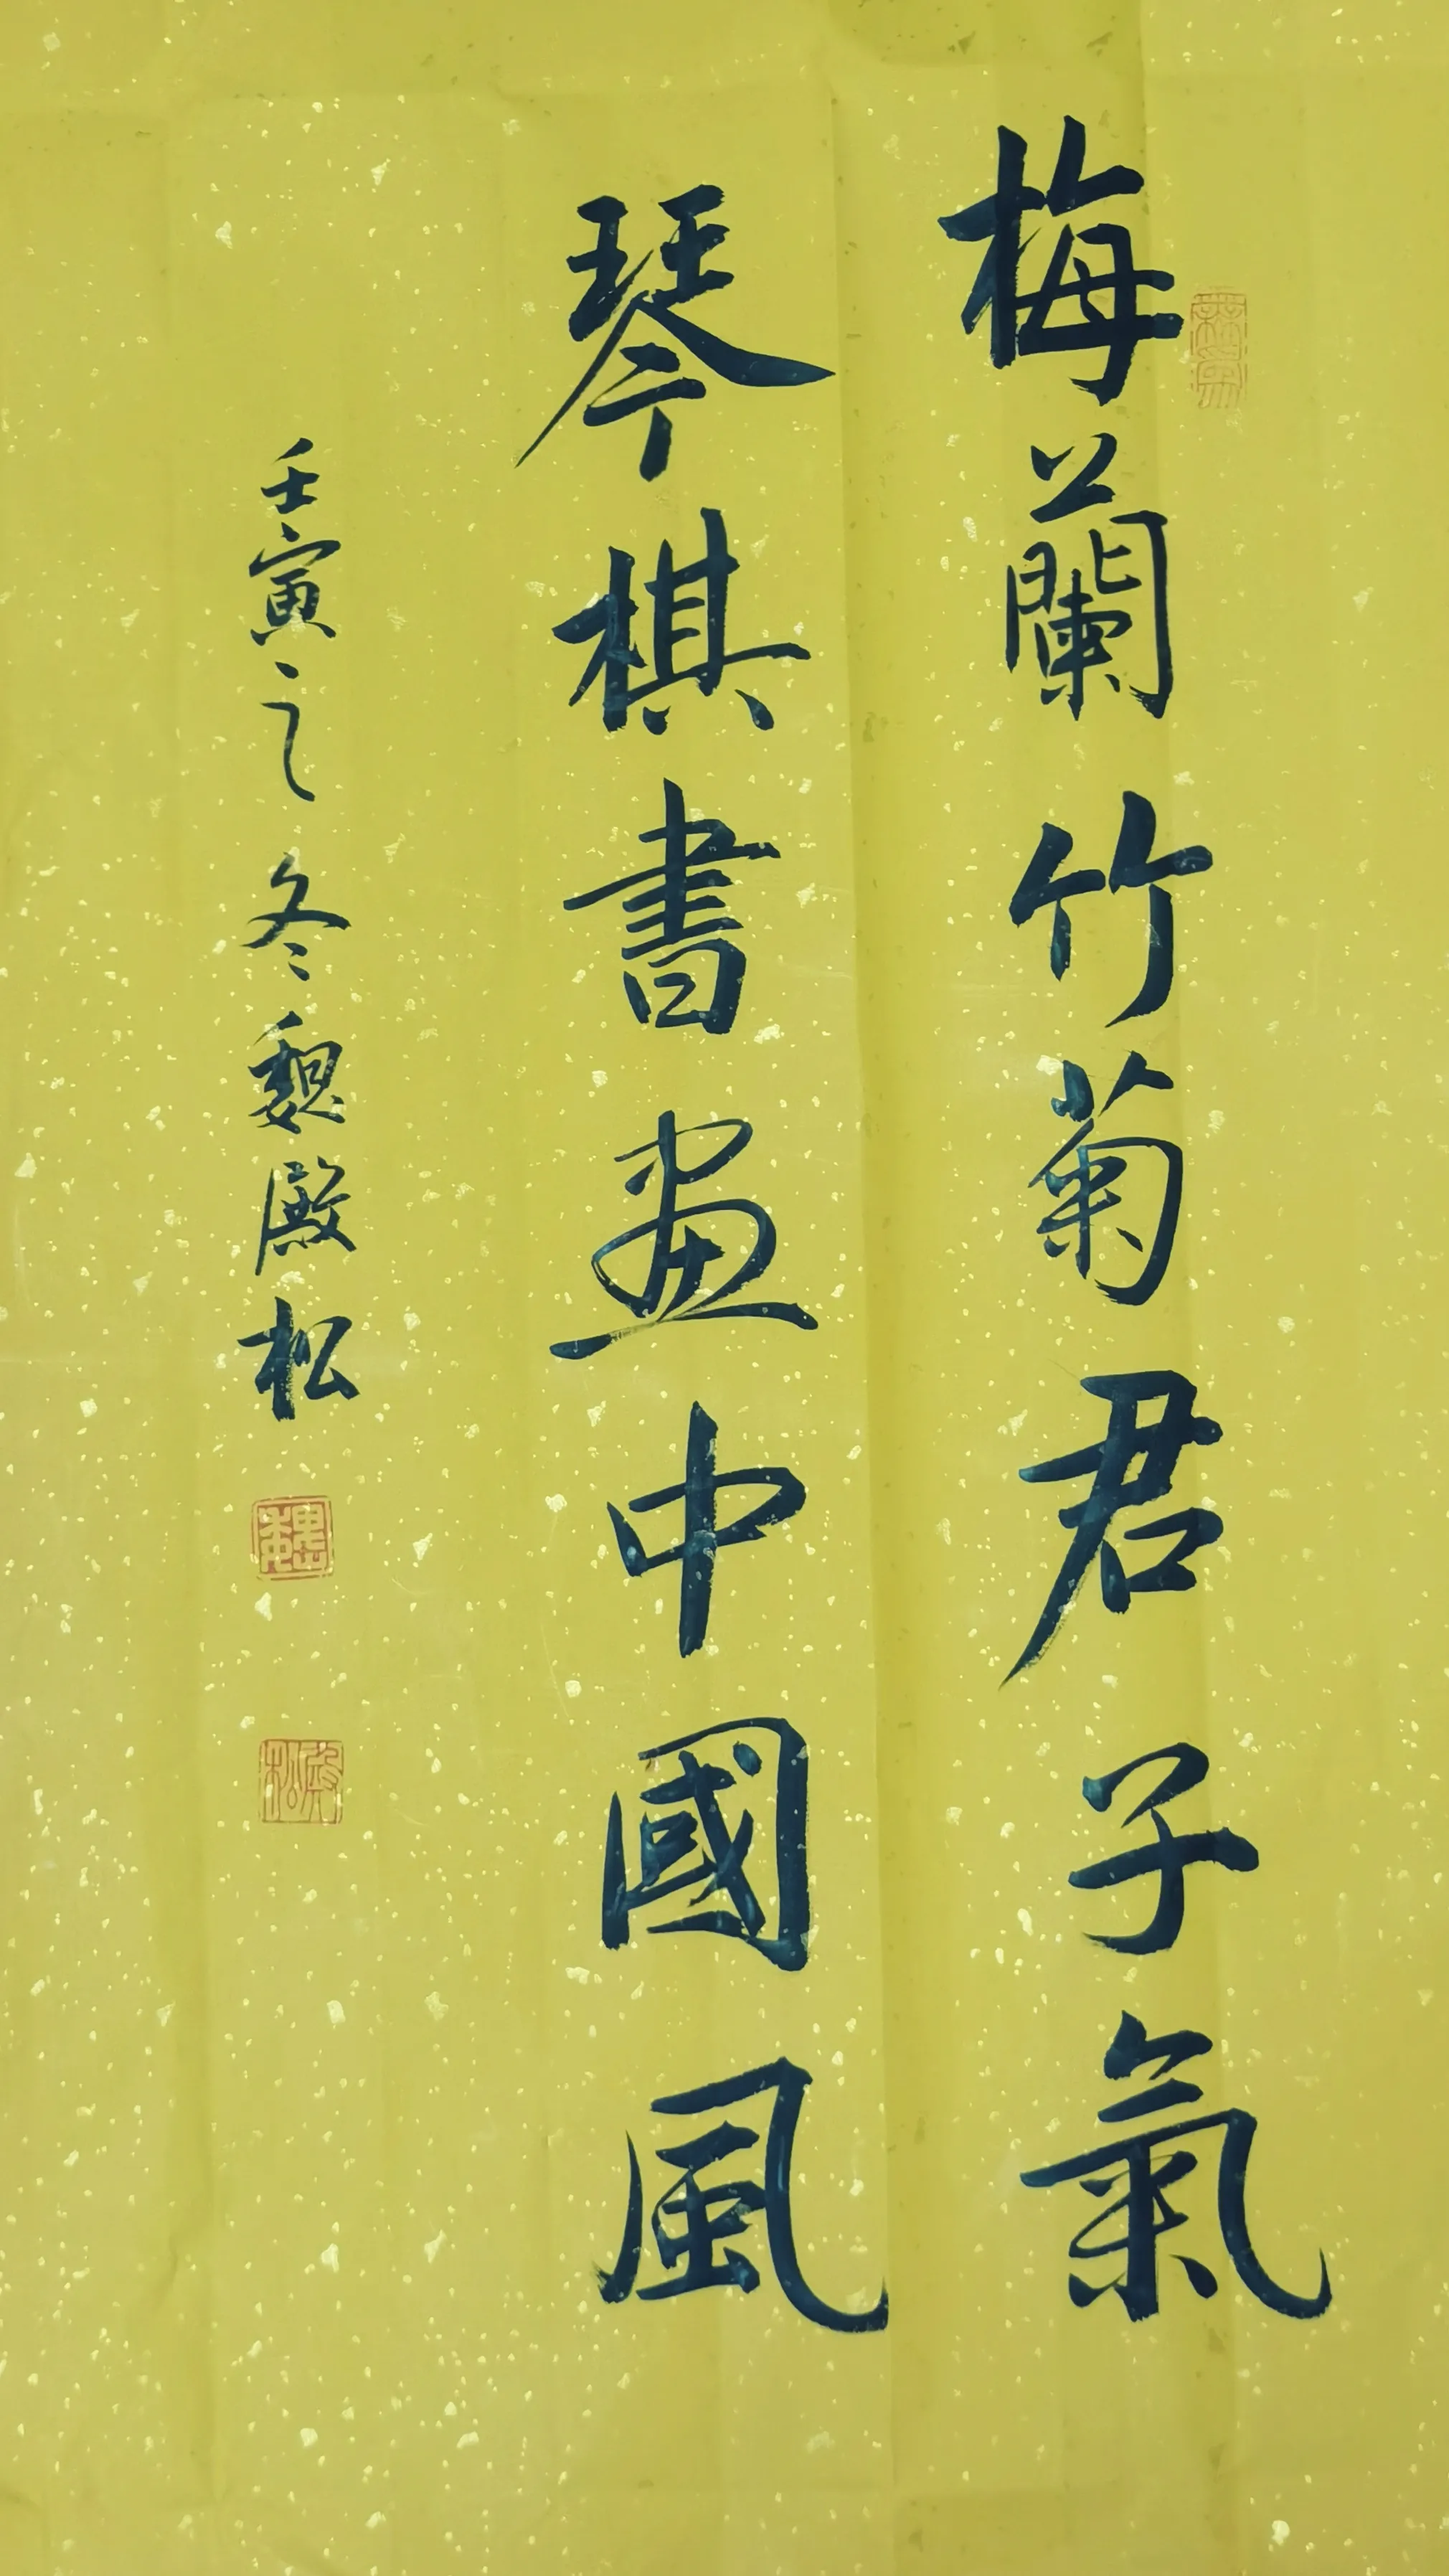 梅蘭竹菊君子氣
琴棋書畫中國風
壬寅之冬魏殿松
魏
殿松